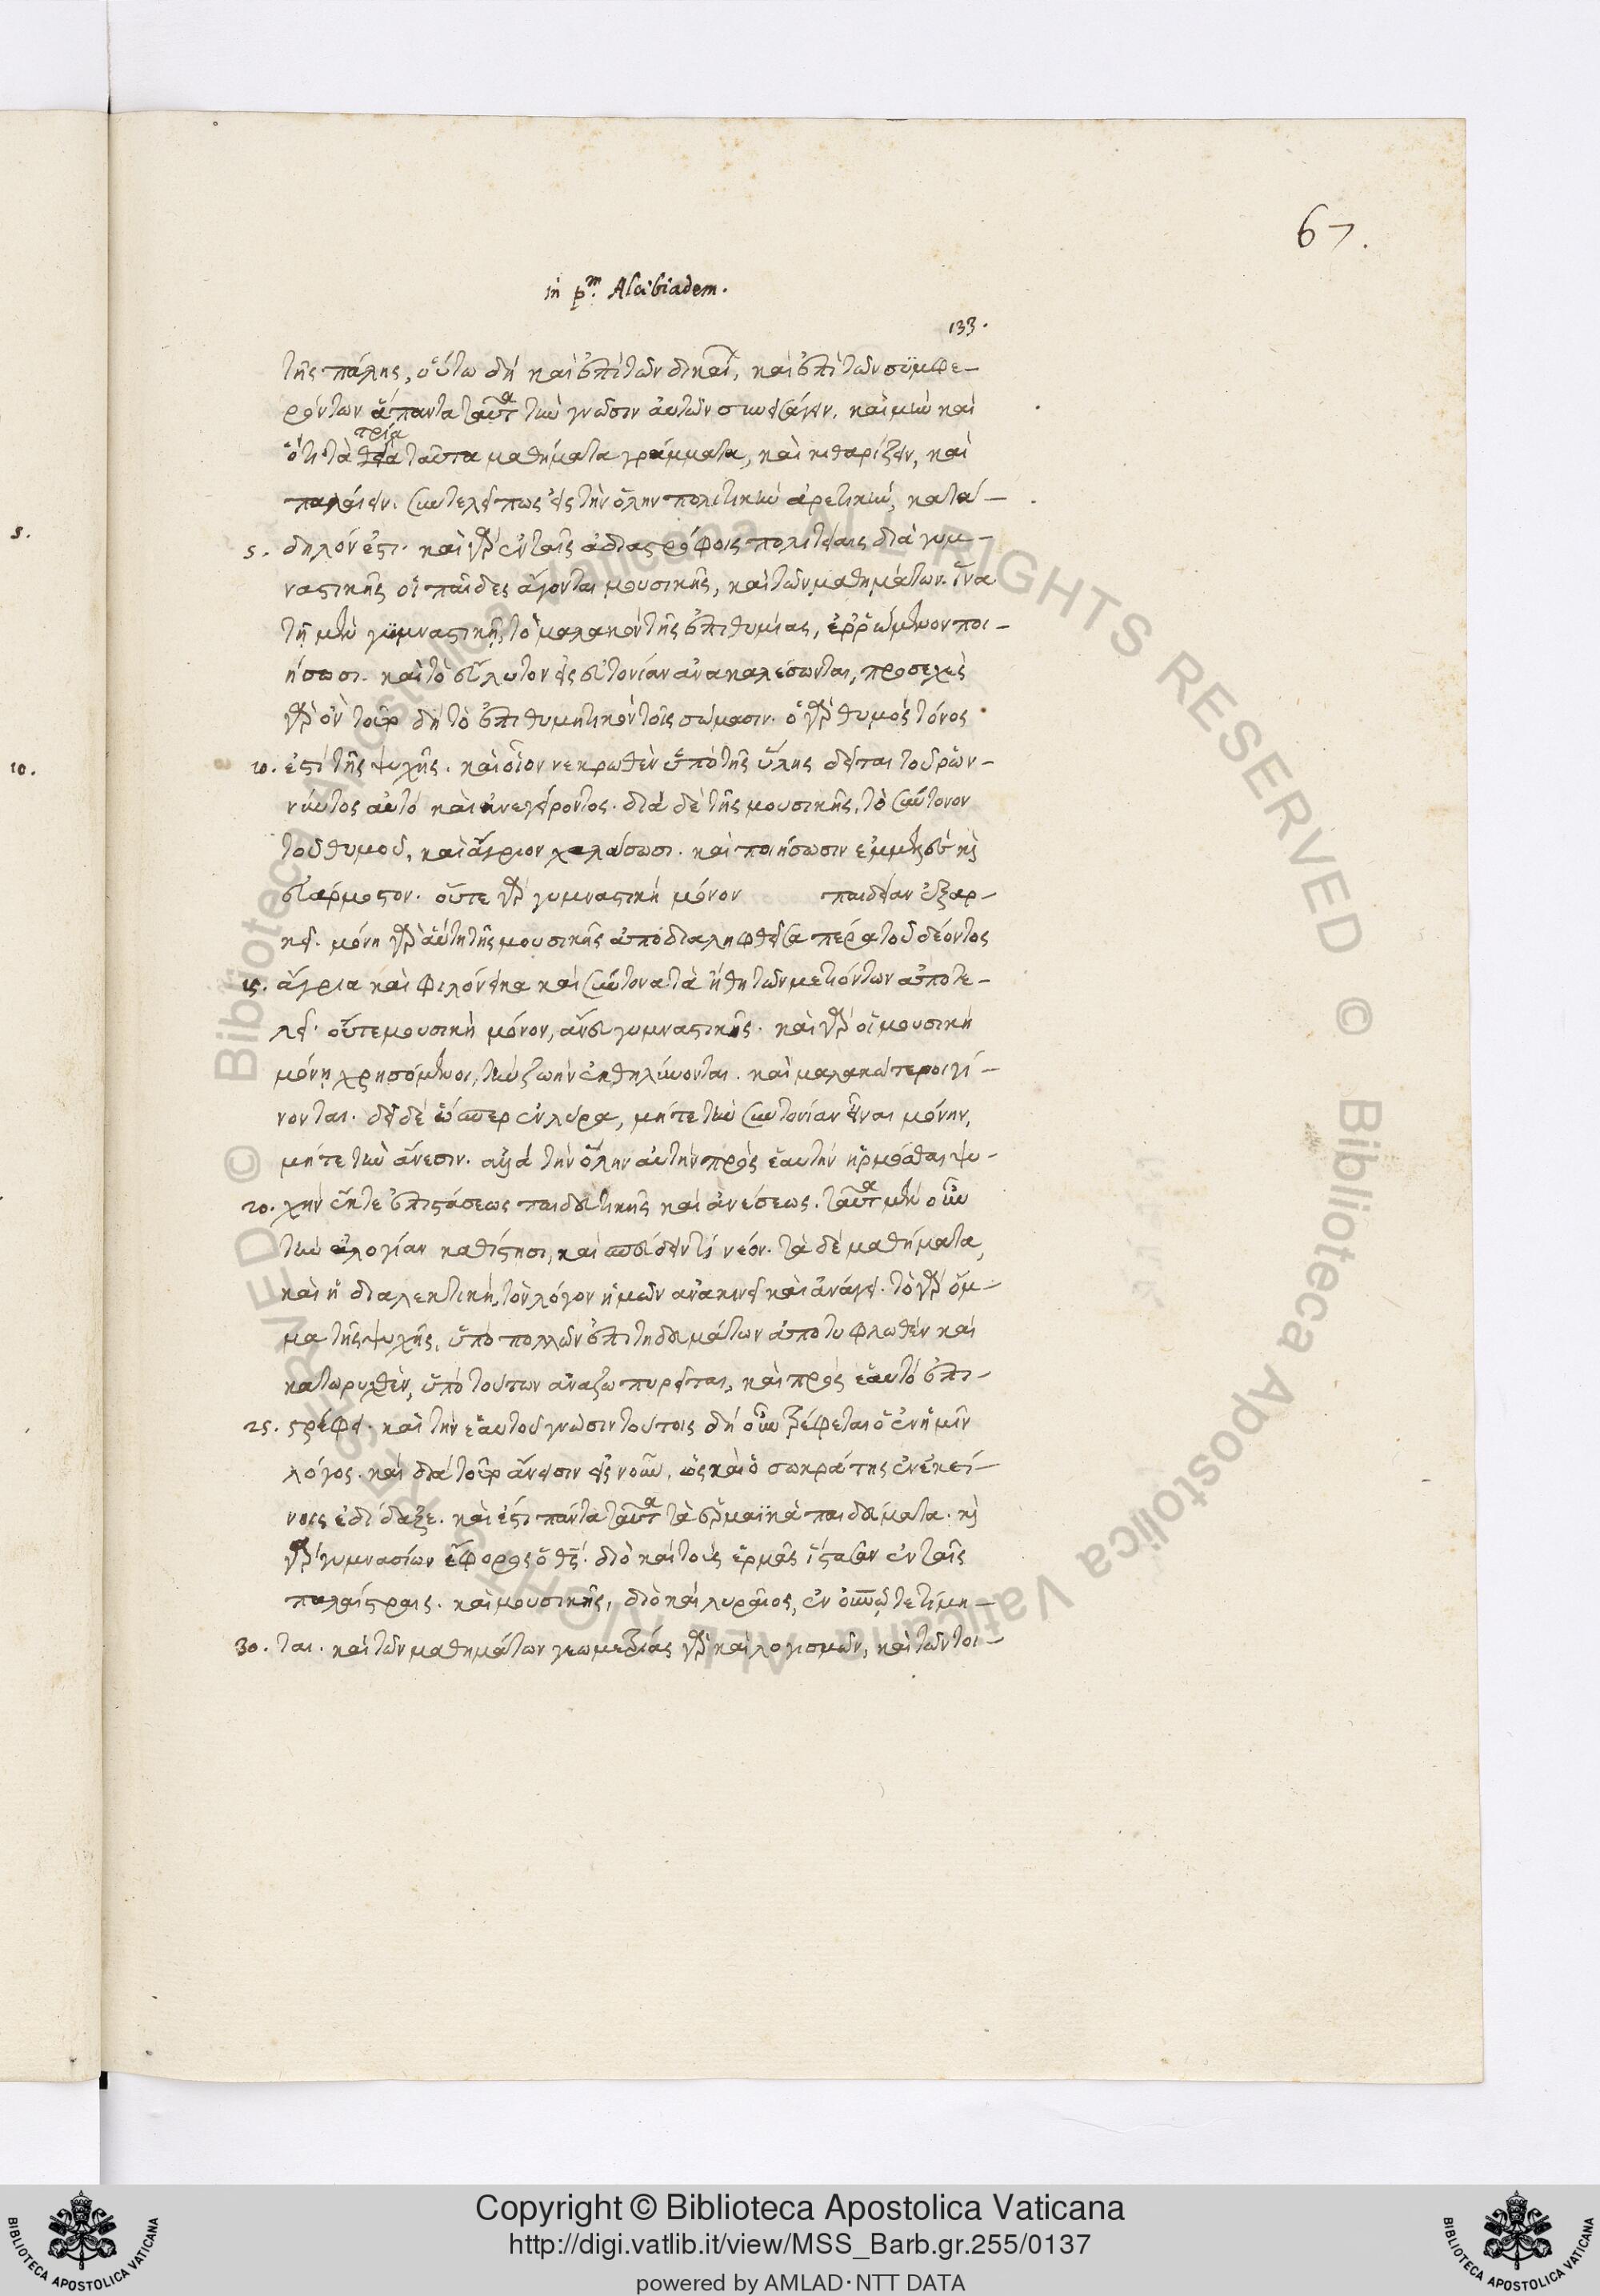 67.
in pm. Alcibiadem.
133.
τῆς πάλης, οὕτω δὴ καὶ ἐπὶ τῶν δικαί, καὶ ἐπὶ τῶν συμφε-
ρόντων ἅπαντα ταῦτα τὴν γνῶσιν αὐτῶν συνεισάγειν. καὶ μὴν καὶ
τρία
ὅτι τὰ ταῦτα μαθήματα γράμματα, καὶ κιθαρίζειν, καὶ
παλαίειν. συντελεῖ πως εἰς τὴν ὅλην πολιτικὴν ἀρετικὴν, κατά-
5. δηλόν ἐστι. καὶ γὰρ ἐν ταῖς ἀδιαστρόφοις πολιτείαις διὰ γυμ-
ναστικῆς οἱ παῖδες ἄγονται μουσικῆς, καὶ τῶν μαθημάτων. ἵνα
τῇ μὲν γυμναστικῇ, τὸ μαλακὸν τῆς ἐπιθυμίας, ἐρρωμένον ποι-
ήσωσι. καὶ τὸ ἔκλυτον εἰς εὐτονίαν ἀνακαλέσωνται, προσεχὲς
γὰρ δὴ τὸ ἐπιθυμητικὸν τοῖς σώμασιν. ὁ γὰρ θυμὸς τόνος
10. ἐστὶ τῆς ψυχῆς. καὶ οἷον νεκρωθὲν ὑπὸ τῆς ὕλης δεῖται τοῦ ῥων-
νύντος αὐτὸ καὶ ἀνεγείροντος. διὰ δὲ τῆς μουσικῆς, τὸ σύντονον
τοῦ θυμοῦ, καὶ ἄγριον χαλάσωσι. καὶ ποιήσωσιν ἐμμελὲς καὶ
εὐάρμοστον. οὔτε γὰρ γυμναστικὴ μόνον παιδείαν ἐξαρ-
κεῖ. μόνη γὰρ αὕτη τῆς μουσικῆς ἀποδιαληφθεῖσα πέρα τοῦ δέοντος
15. ἄγρια καὶ φιλόνεικα καὶ σύντονα τὰ ἤθη τῶν μετιόντων ἀποτε-
λεῖ. οὔτε μουσικὴ μόνον, ἄνευ γυμναστικῆς. καὶ γὰρ οἱ μουσικῇ
μόνῃ χρησόμενοι, τὴν ζωὴν ἐκθηλύνονται. καὶ μαλακώτεροι γί-
νονται. δεῖ δὲ ὥσπερ ἐν λύρᾳ, μήτε τὴν συντονίαν εἶναι μόνην,
μήτε τὴν ἄνεσιν. ἀλλὰ τὴν ὅλην αὐτὴν πρὸς ἑαυτὴν ἡρμόσθαι ψυ-
20. χὴν ἔκ τε ἐπιστάσεως παιδευτικῆς καὶ ἀνέσεως. ταῦτα μὲν οὖν
τὴν ἀλογίαν καθίστησι, καὶ παιδεύει τὸν νέον. τὰ δὲ μαθήματα,
καὶ ἡ διαλεκτική, τὸν λόγον ἡμῶν ἀνακινεῖ καὶ ἀνάγει. τὸ γὰρ ὄμ-
μα τῆς ψυχῆς, ὑπὸ πολλῶν ἐπιτηδευμάτων ἀποτυφλωθὲν καὶ
κατωρυχθὲν, ὑπὸ τούτων ἀναζωπυρεῖται, καὶ πρὸς ἑαυτὸ ἐπι-
25. στρέφει. καὶ τὴν ἑαυτοῦ γνῶσιν τούτοις δὴ οὖν τρέφεται ὁ ἐν ἡμῖν
λόγος. καὶ διὰ ἄνεισιν εἰς νοῦν, ὡς καὶ ὁ σωκράτης ἐν ἐκεί-
νοις ἐδίδαξε. καὶ ἐστὶ πάντα ταῦτα τὰ ἑρμαϊκὰ παιδεύματα. καὶ
γὰρ γυμνασίων ἔφορος ὁ θεός. διὸ καὶ τοὺς ἑρμᾶς ἵστασαν ἐν ταῖς
παλαίστραις. καὶ μουσικῆς, διὸ καὶ λυραῖος, ἐν τετίμη-
30. ται. καὶ τῶν μαθημάτων γεωμετρίας γὰρ καὶ λογισμῶν, καὶ τῶν τοι-
5.
10.
Copyright © Biblioteca Apostolica Vaticana
http://digi.vatlib.it/view/MSS_Barb.gr.255/0137
powered by AMLAD·NTT DATA
BIBLIOTECA APOSTOLICA VATICANA
BIBLIOTECA APOSTOLICA VATICANA